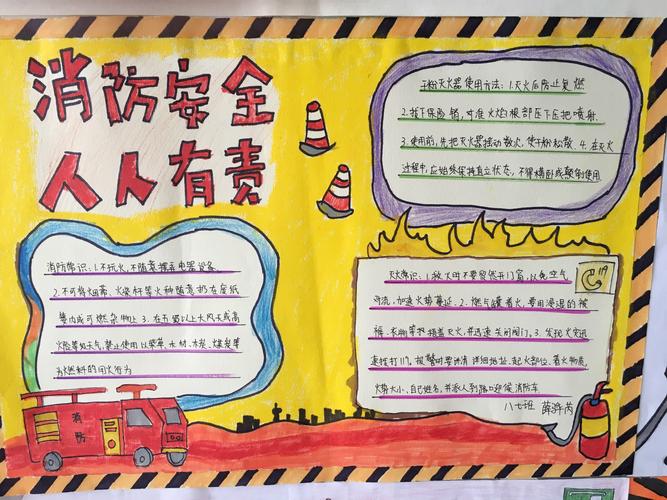 消防安全
人人有责
干粉灭火器使用方法：1.灭火后防止复燃
2.拔下保险销，对准火焰根部压下压把喷射
3.使用前，先把灭火器摇动数次，使干粉松散、4.在灭火
过程中，应始终保持直立状态，不得横卧或颠倒使用
消防常识：1.不玩火，不随意摆弄电器设备
2.不可将烟蒂、火柴杆等火种随意扔在废纸
篓内或可燃杂物上 3.在五级以上大风天或高
火险等级天气，禁止使用以柴草、木材、木炭、煤炭等
为燃料的用火行为
灭火常识：1.救火时不要贸然开门窗，以免空气
对流，加速火势蔓延、2.燃气罐着火，要用浸湿的被
褥、衣物等捂盖灭火，并迅速关闭阀门。3.发现火灾迅
速拨打119。报警时要讲清详细地址、起火部位、着火物质、
火势大小、自己姓名，并派人到路口迎候消防车
119
八七班
消防